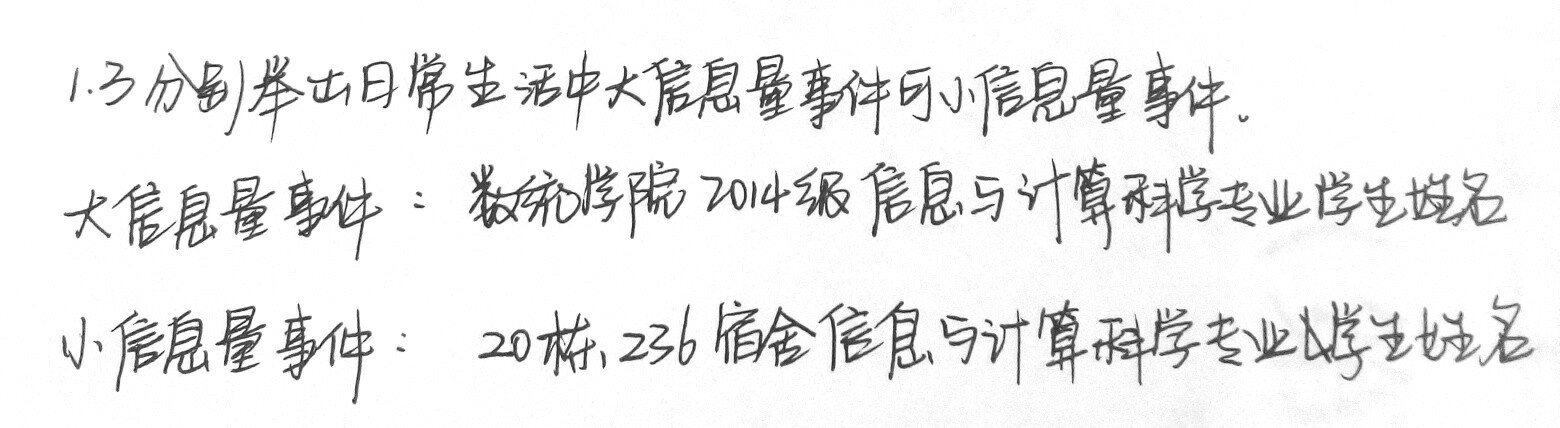 1.3分别举出日常生活中大信息量事件和小信息量事件。
大信息量事件：数统学院2014级信息与计算科学专业学生姓名
小信息量事件：20栋,236宿舍信息与计算科学专业学生姓名